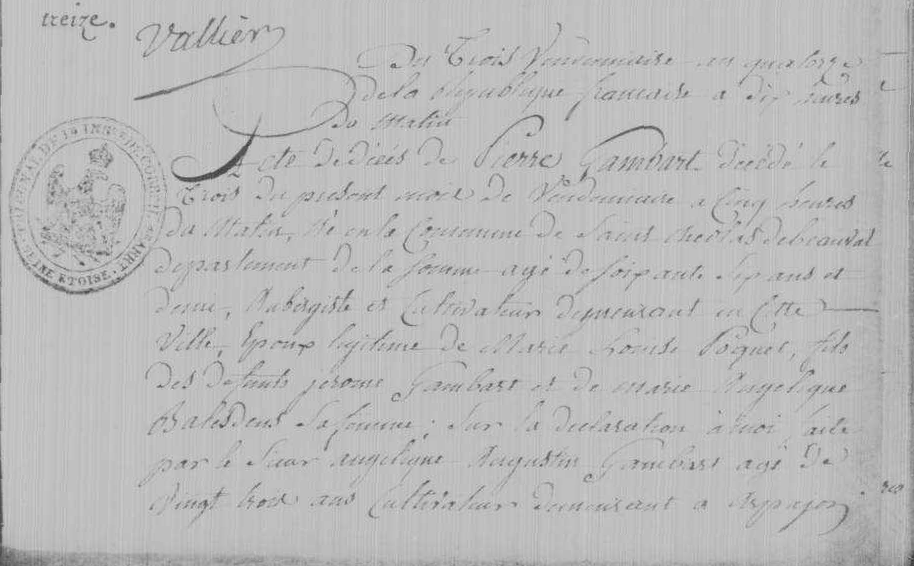 treize.
Vallier
Du Trois Vendemiaire an quatorze
de la Republique francaise a dix heures
Du Matin
Acte de décés de Pierre Gambart décédé le
Trois du present mois de Vendemiaire a Cinq heures
Du Matin, Né en la Commune de Saint de beauval
Departement de la Somme agé de soixante Sept ans et
demi, Aubergiste et Cultivateur demeurant en Cette
Ville, Epoux legitime de Marie Louise Poquet, fils
des defunts jerome Gambart et de Marie Angelique
Balesdens Sa femme; Sur la declaration à moi faite
par le Sieur angelique Augustin Gambart agé de
Vingt trois ans Cultivateur demeurant a Arpajon